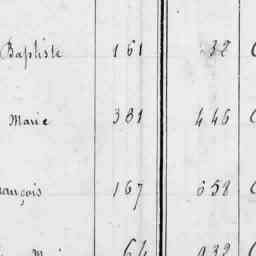 Baptiste 161 32
Marie 381 446
rançois 167 052
64 932